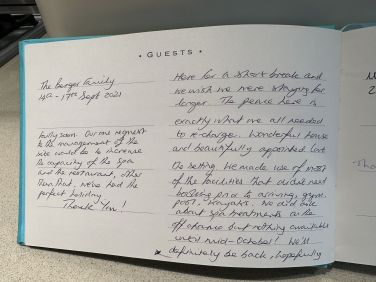 • GUESTS •
The Berger Family
14th - 17th Sept 2021
fairly soon. Our one request
to the management of the
site would be to increase
the capacity of the spa
and the restaurant, other
than that, we've had the
perfect holiday
Thank You!
Here for a short break and
we wish we were staying for
longer. The peace here is
exactly what we all needed
to re-charge. Wonderful house
and beautifully appointed
setting. We made use of most
of the facilities that didn't need
booking prior to arriving, gym,
pool, kayaks. We did ask
about spa treatments on the
off chance but nothing available
until mid-October! We'll
definitely be back, hopefully